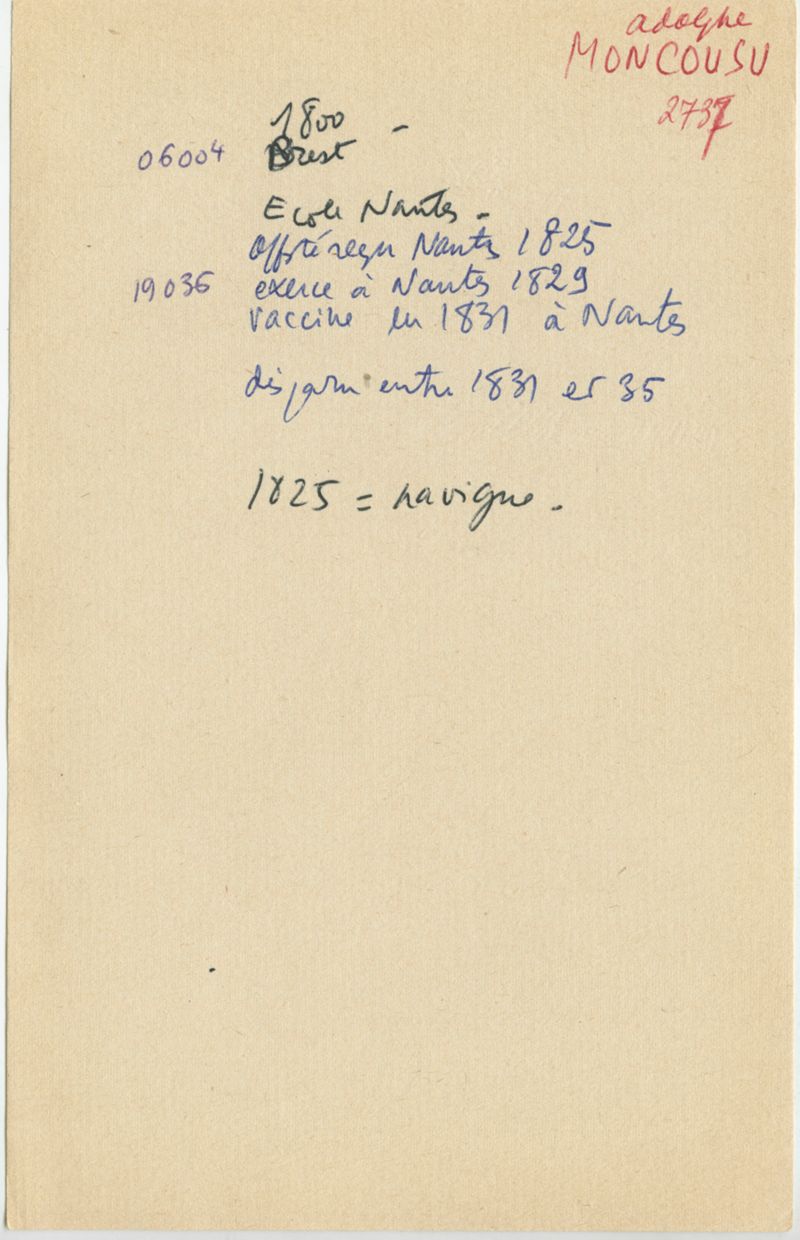 adolphe
MONCOUSU
2737
1800 -
06004 Brest
Ecole Nantes -
offsté reçu Nantes 1825
19036 exerce à Nantes 1829
vaccine en 1831 à Nantes
disparu entre 1831 et 35
1825 = navigue.